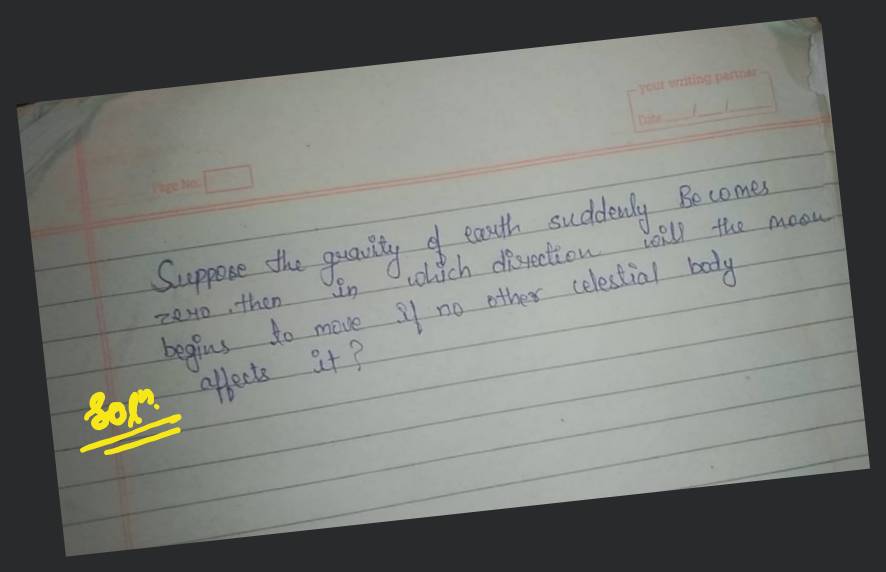 your writing partner
Date ___/___/___
Page No.
Suppose the gravity of earth suddenly Becomes
zero, then in which direction will the moon
begins to move if no other celestial body
affects it?
Solⁿ.